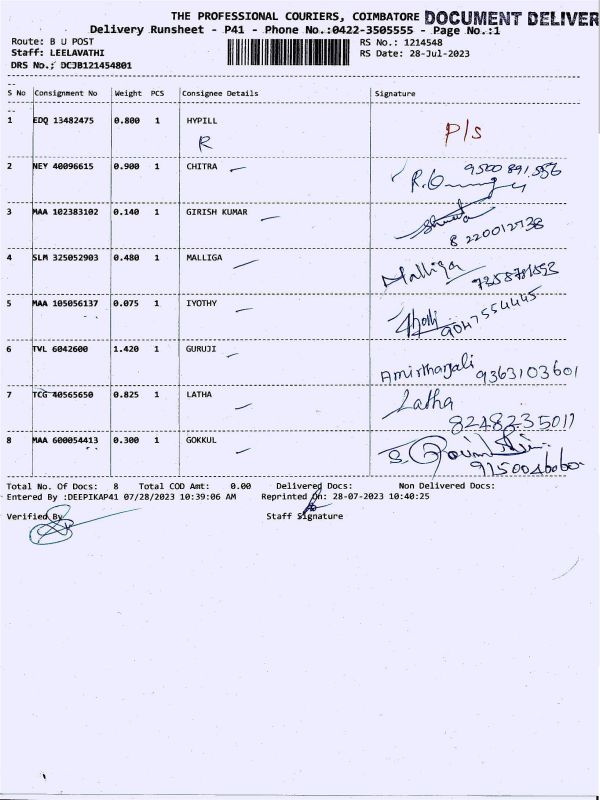 THE PROFESSIONAL COURIERS, COIMBATORE DOCUMENT DELIVER
Delivery Runsheet - P41 - Phone No.:0422-3505555 - Page No.:1
Route: B U POST RS No.: 1214548
Staff: LEELAVATHI RS Date: 28-Jul-2023
DRS No.: DCJB121454801
S No Consignment No Weight PCS Consignee Details Signature
1 EDQ 13482475 0.800 1 HYPILL
R P/s
2 NEY 40096615 0.900 1 CHITRA 9500 891 556
3 MAA 102383102 0.140 1 GIRISH KUMAR
8 220012738
4 SLM 325052903 0.480 1 MALLIGA Malliga
5 MAA 105056137 0.075 1 IYOTHY 9047554445
6 TVL 6042600 1.420 1 GURUJI
Amirthagali 9363103601
7 TCG 40565650 0.825 1 LATHA Latha
8248235011
8 MAA 600054413 0.300 1 GOKKUL
Total No. Of Docs: 8 Total COD Amt: 0.00 Delivered Docs: Non Delivered Docs:
Entered By :DEEPIKAP41 07/28/2023 10:39:06 AM Reprinted On: 28-07-2023 10:40:25
Verified By Staff Signature